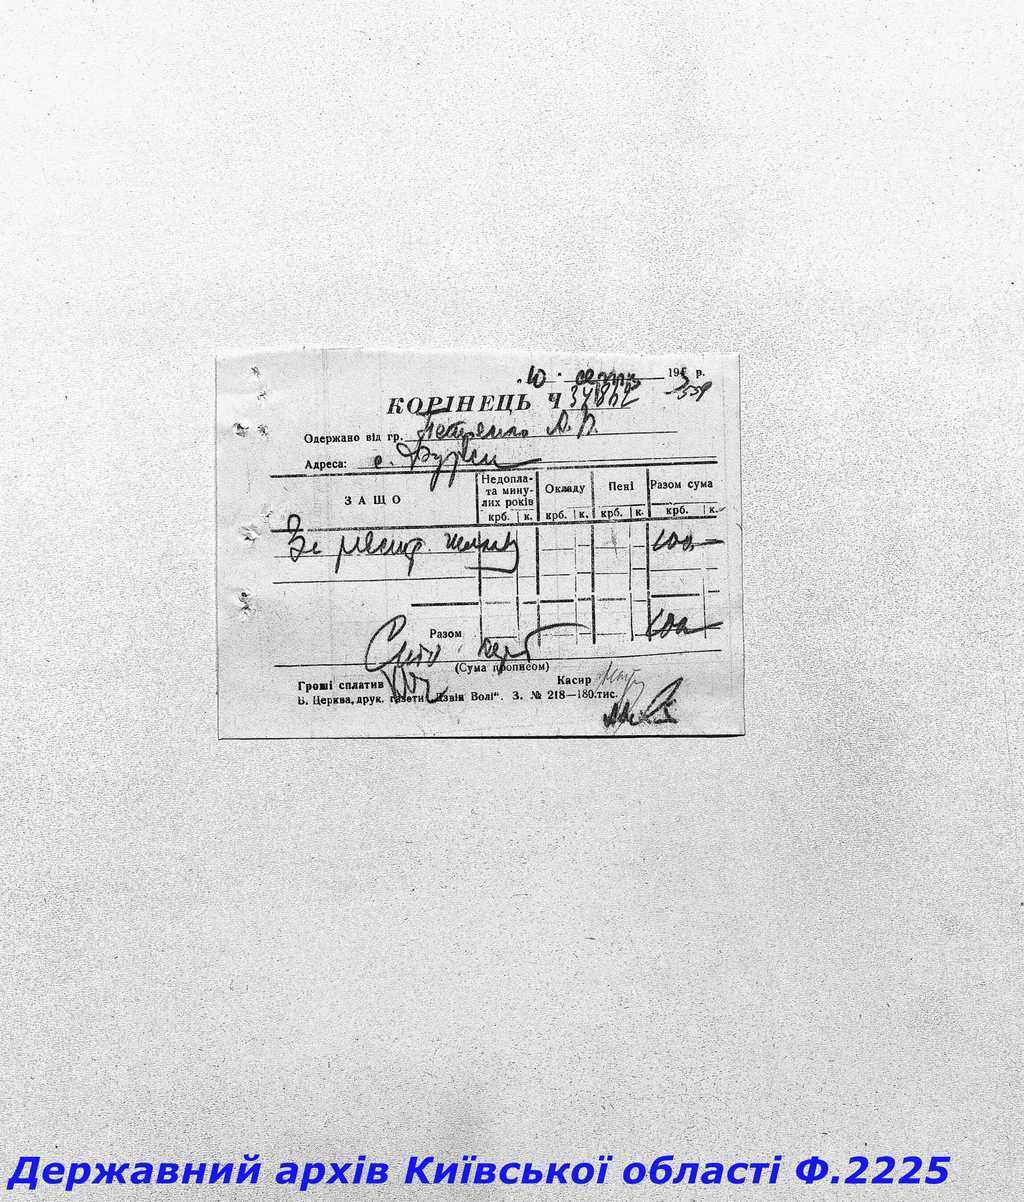 10 194 р.
КОРІНЕЦЬ Ч
Одержано від гр. Петренко А. В.
Адреса: с.
ЗА ЩО
Недопла-
та мину-
лих років
Окладу
Пені
Разом сума
крб. к. крб. к. крб. к. крб. к.
За реєстр. 100
Разом 100
Сто карб
(Сума прописом)
Гроші сплатив
Касир
Б. Церква, друк. газети „Дзвін Волі“. З. № 218—180.тис.
Державний архів Київської області Ф.2225